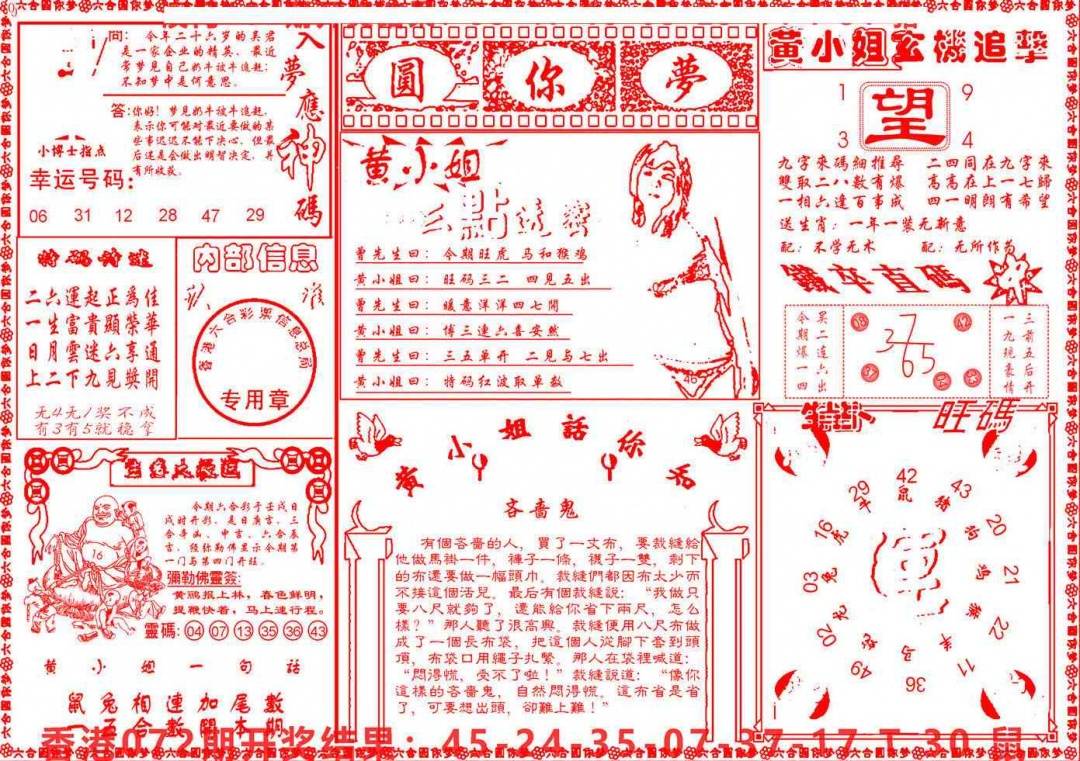 六合圆你梦
问：今年二十六岁的吴君
是一家企业的精英，最近
常梦见自己奶牛被牛追赶；
不知梦中是何意思。
答：你好！梦见奶牛被牛追赶，
表示你可能对最近要做的某
些事迟迟不能下决心，但最
后还是会做出明智决定，并
有所收获。
小博士指点
幸运号码：
06 31 12 28 47 29
入夢應神碼
圓你夢
黄小姐玄機追擊
1 9
望
3 4
九字來碼細推尋 二四同在九字來
雙取二八數有爆 高高在上一七歸
一相六逢百事成 四一明朗有希望
送生肖：一年一裝无新意
配：不学无术 配：无所作为
特码诗迷
二六運起正爲佳
一生富貴顯榮華
日月雲迷六享通
上二下九見獎開
无4无1奖不成
有3有5就稳拿
内部信息
香港六合彩票信息总局
专用章
黄小姐
曾先生曰：今期旺虎 马和猴鸡
黄小姐曰：旺码三二 四見五出
曾先生曰：暖意洋洋四七開
黄小姐曰：博三連六喜安然
曾先生曰：三五单开 二見与七出
黄小姐曰：特码红波取单数
46
鐵卒直碼
今期爆一四
果二连六出
365
一九現豪情
三前五后开
今期六合彩于壬戌日
戌时开彩，是日庚吉，三
合寺函，申吉，六合辰
吉，经弥勒佛显示今期第
一门与第四门开旺。
16
彌勒佛靈簽：
黄鹂报上林，春色鲜明，
提鞭快着，马上速行程。
靈碼：04 07 13 35 36 43
黄小姐一句話
鼠兔相連加尾數
一五合數開本期
黄小姐話你知
吝嗇鬼
有個吝嗇的人，買了一丈布，要裁縫給
他做馬掛一件，褲子一條，襪子一雙，剩下
的布還要做一幅頭巾。裁縫們都因布太少而
不接這個活兒。最后有個裁縫說：“我做只
要八尺就夠了，還能給你省下兩尺，怎么
樣？”那人聽了很高興。裁縫便用八尺布做
成了一個長布袋，把這個人從腳下套到頭
頂，布袋口用繩子扎緊。那人在袋裡喊道：
“悶得慌，受不了啦！”裁縫說道：“像你
這樣的吝嗇鬼，自然悶得慌，這布省是省
了，可要想出頭，卻難上難！”
生肖 旺碼
42 鼠
43 豬
20 狗
21 鸡
22
11
36 马
49 蛇
02 龙
03 兔
16 虎
29 牛
香港072期开奖结果：45-24-35-07-37-17-T-30 鼠